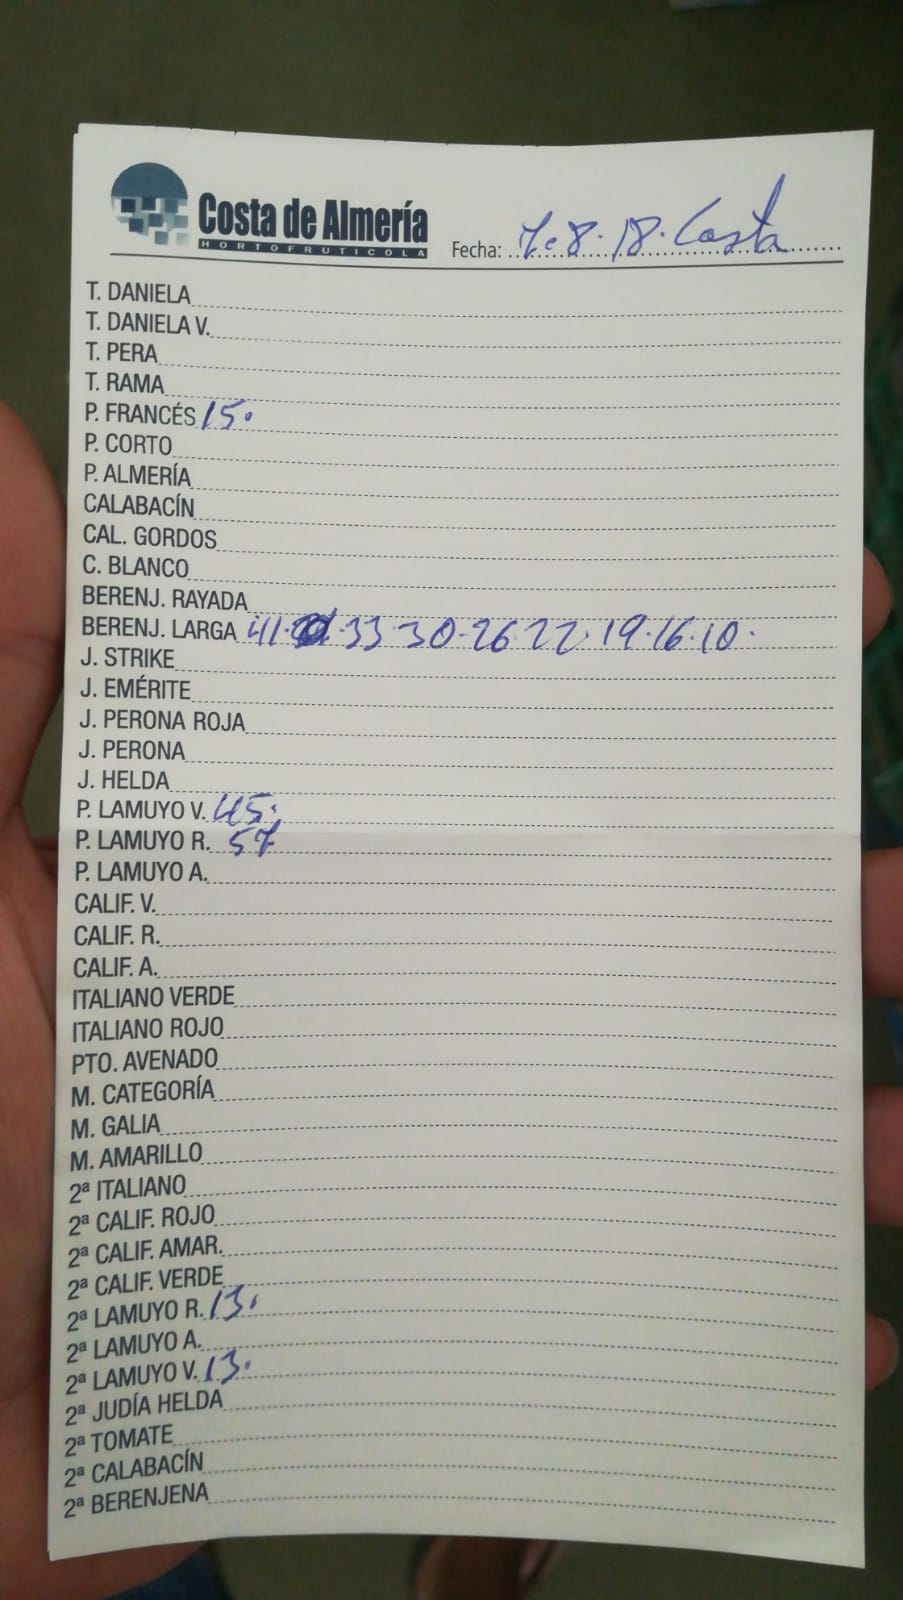 Costa de Almería
HORTOFRUTICOLA
Fecha: 7-8-18. Costa
T. DANIELA
T. DANIELA V.
T. PERA
T. RAMA
P. FRANCÉS 15.
P. CORTO
P. ALMERÍA
CALABACÍN
CAL. GORDOS
C. BLANCO
BERENJ. RAYADA
BERENJ. LARGA 41. 33 30-26 22 19.16.10.
J. STRIKE
J. EMÉRITE
J. PERONA ROJA
J. PERONA
J. HELDA
P. LAMUYO V. 45.
P. LAMUYO R. 57
P. LAMUYO A.
CALIF. V.
CALIF. R.
CALIF. A.
ITALIANO VERDE
ITALIANO ROJO
PTO. AVENADO
M. CATEGORÍA
M. GALIA
M. AMARILLO
2ª ITALIANO
2ª CALIF. ROJO
2ª CALIF. AMAR.
2ª CALIF. VERDE
2ª LAMUYO R. 13.
2ª LAMUYO A.
2ª LAMUYO V. 13.
2ª JUDÍA HELDA
2ª TOMATE
2ª CALABACÍN
2ª BERENJENA